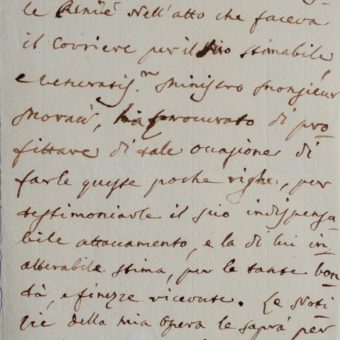 Nell'atto che faceva
il Corriere per il suo stimabile
e veneratis.mo Ministro Monsieur
ha procurato di pro
fittare di tale occasione di
farle queste poche righe, per
testimoniarle il suo indispensa
bile attaccamento, e la di lui in
alterabile stima, per le tante bon
tà, e finezze ricevute. Le Noti
zie della mia opera le saprà per